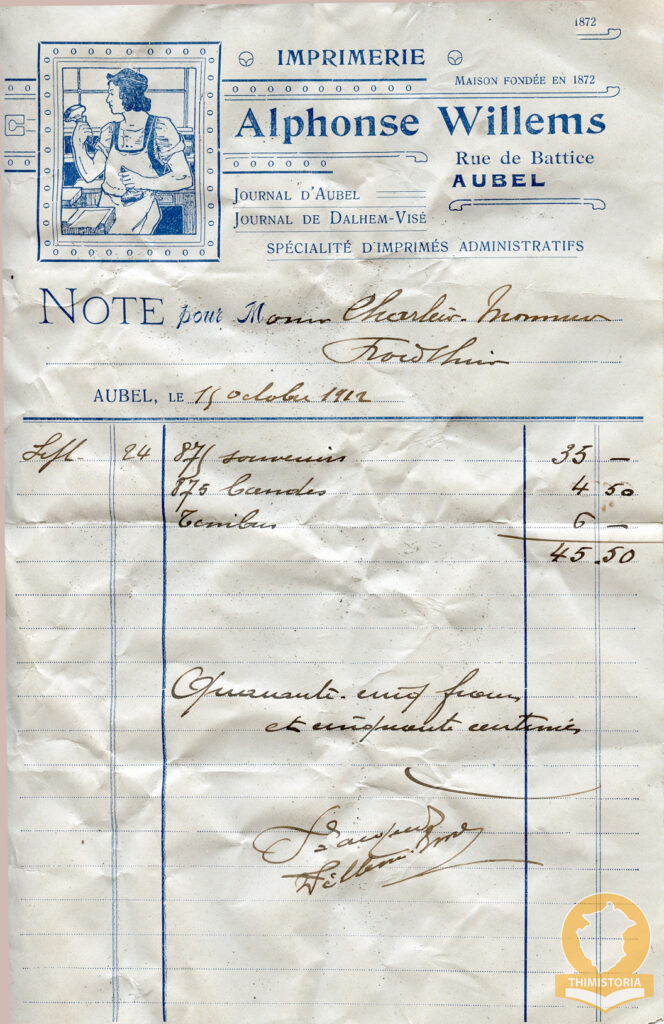 1872
IMPRIMERIE
MAISON FONDÉE EN 1872
Alphonse Willems
Rue de Battice
AUBEL
JOURNAL D'AUBEL
JOURNAL DE DALHEM-VISÉ
SPÉCIALITÉ D'IMPRIMÉS ADMINISTRATIFS
NOTE pour Charlier
AUBEL, LE 15 octobre 1912
Sept. 24 875 souvenirs 35 —
875 bandes 4 50
Timbres 6 —
45.50
Quarante-cinq francs
et cinquante centimes
Willems
THIMISTORIA